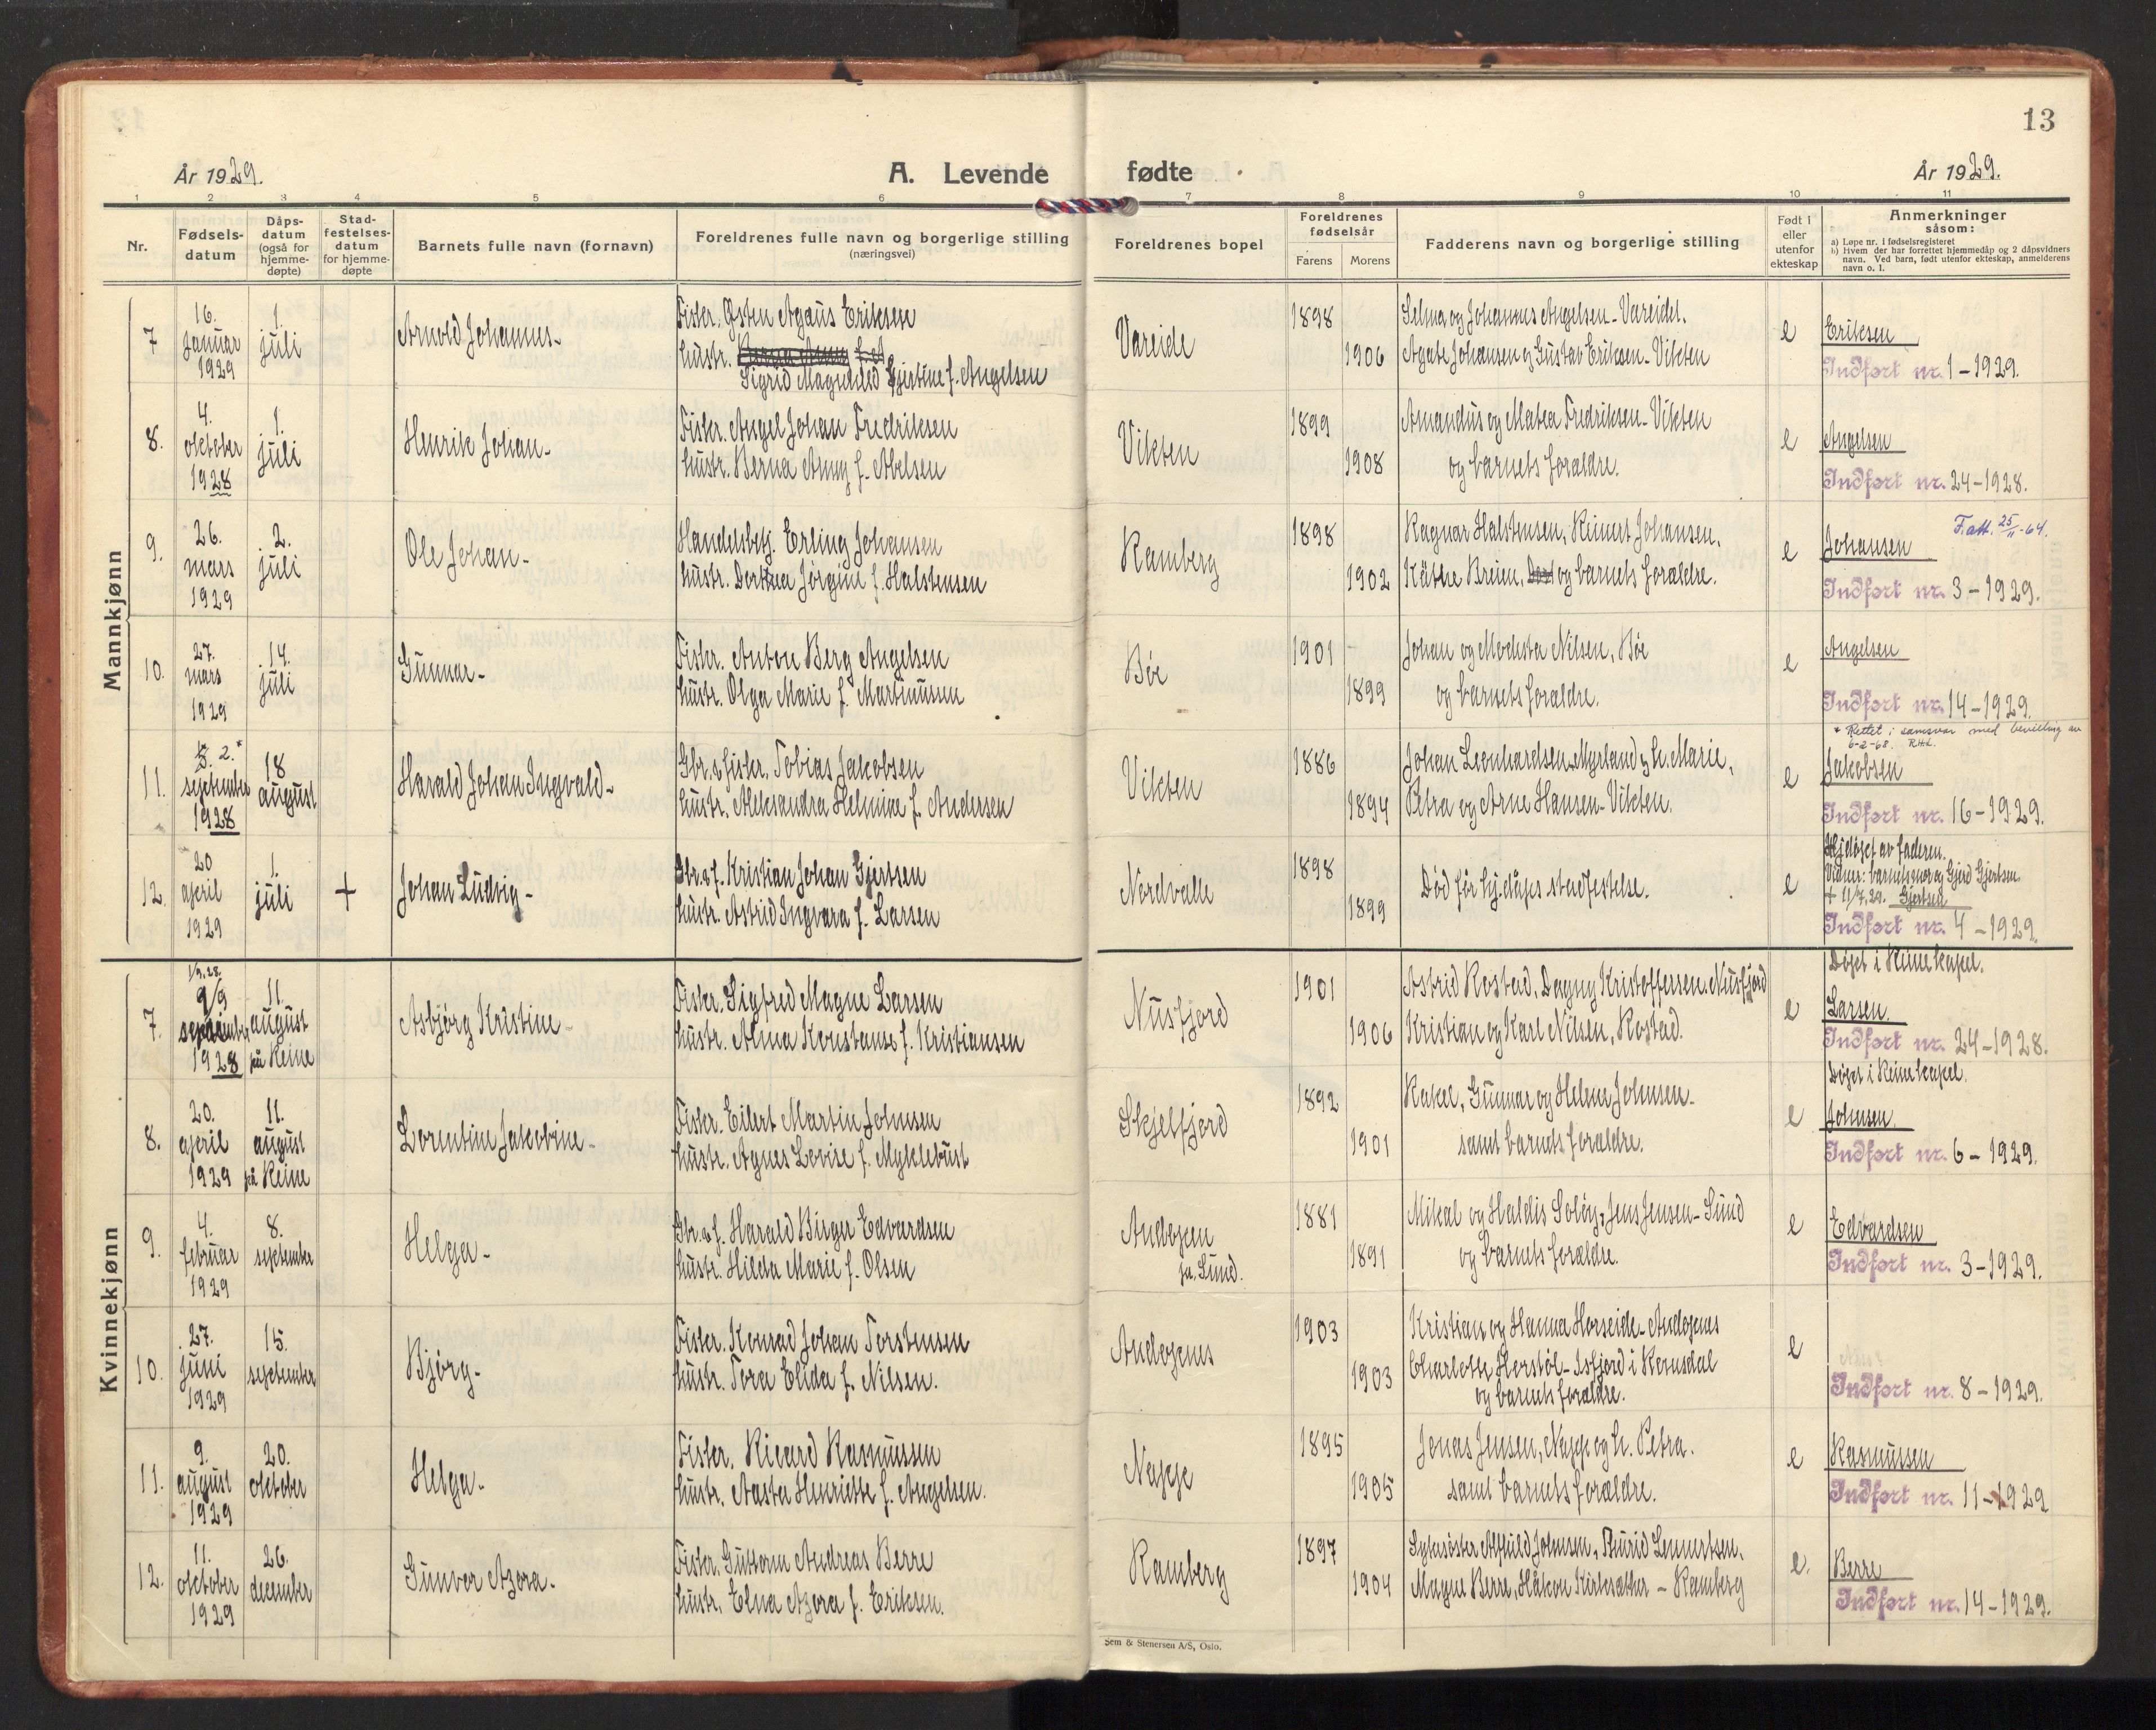 13
År 1929.
A. Levende fødte
År 1929.
1 2 3 4 5 6 7 8 9 10 11
Nr.
Fødsels-
datum
Dåps-
datum
(også for
hjemme-
døpte)
Stad-
festelses-
datum
for hjemme-
døpte
Barnets fulle navn (fornavn)
Foreldrenes fulle navn og borgerlige stilling
(næringsvei)
Foreldrenes bopel
Foreldrenes
fødselsår
Farens
Morens
Fadderens navn og borgerlige stilling
Født i
eller
utenfor
ekteskap
Anmerkninger
såsom:
a) Løpe nr. i fødselsregisteret
b) Hvem der har forrettet hjemmedåp og 2 dåpsvidners
navn. Ved barn, født utenfor ekteskap, anmelderens
navn o. l.
Mannkjønn
7
16.
januar
1929
1.
juli
Arnold Johannes-
Fisker. Østen Agaus Eriksen
hustr.
Sigrid Magnhild Gjertine f. Angelsen
Vareide
1898
1906
Selma og Johannes Angelsen - Vareidet.
Agate Johansen og Gustav Eriksen - Vikten
e
Eriksen
Indført nr. 1-1929.
8.
4.
oktober
1928
1.
juli
Henrik Johan-
Fisker. Angel Johan Fredriksen
hustr. Berna Anny f. Abelsen
Vikten
1899
1908
Amandus og Matea Fredriksen - Vikten
og barnets foreldre.
e
Angelsen
Indført nr. 24-1928.
9.
26.
mars
1929
2.
juli
Ole Johan-
Handelsbetj. Erling Johansen
hustr. Dorthea Jørgine f. Halstensen
Ramberg
1898
1902
Ragnar Halstensen, Reinert Johansen,
Käthe Breien, og barnets foreldre.
e
F.att. 25/11-64.
Johansen
Indført nr. 3-1929.
10.
27.
mars
1929
14.
juli
Gunnar-
Fisker. Anton Berg Angelsen
hustr. Olga Marie f. Martinussen
Bøe
1901
1899
Johan og Modesta Nilsen, Bøe
og barnets foreldre.
e
Angelsen
Indført nr. 14-1929.
11.
2.*
september
1928
18
august
Harald Johan Ingvald-
Gbr. & fisker. Tobias Jakobsen
hustr. Aleksandra Helmine f. Andersen
Vikten
1886
1894
Johan Leonhardsen, Myrland og h. Marie,
Petra og Arne Hansen - Vikten.
e
* Rettet i samsvar med bevilling av
6-2-68. RHL.
Jakobsen
Indført nr. 16-1929.
12.
20
april
1929
1.
juli
+
Johan Ludvig-
Gbr. & f. Kristian Johan Gjertsen
hustr. Astrid Ingvara f. Larsen
Nordvalle
1898
1899
Død før hj.dåpes stadfestelse.
e
Hj.døpt av faderen.
Vidner: barnets mor og Gjerd Gjertsen
+ 11/7.29. Gjertsen
Indført nr. 4-1929.
Kvinnekjønn
7.
1/9.28.
9/9
september
1928
11.
august
på Reine
Asbjørg Kristine-
Fisker. Sigfred Magne Larsen
hustr. Alma Konstanse f. Kristiansen
Nusfjord
1901
1906
Astrid Rostad, Dagny Kristoffersen, Nusfjord
Kristian og Karl Nilsen, Rostad.
e
Døpt i Reine kapel.
Larsen.
Indført nr. 24-1928.
8.
20.
april
1929
11.
august
på Reine
Lorentine Jakobine-
Fisker. Eilert Martin Johnsen
hustr. Agnes Lovise f. Myklebust
Skjelfjord
1892
1901
Rakel, Gunnar og Helene Johnsen-
samt barnets foreldre.
e
Døpt i Reine kapel.
Johnsen.
Indført nr. 6-1929.
9.
4.
februar
1929
8.
september
Helga-
Gbr. & f. Harald Birger Edvardsen
hustr. Hilda Marie f. Olsen
Andopen
pr. Sund.
1881
1891
Mikal og Haldis Soløy, Jens Jensen - Sund
og barnets foreldre.
e
Edvardsen
Indført nr. 3-1929.
10.
27.
juni
1929
15.
september
Bjørg-
Fisker. Konrad Johan Torstensen
hustr. Tora Elida f. Nilsen.
Andopnes
1903
1903
Kristian og Hanna Horseide - Andopnes
Charlotte Herstøl - Isfjord i Romsdal
og barnets foreldre.
e
Indført nr. 8-1929.
11.
9.
august
1929
20.
oktober
Helga-
Fisker. Rikard Rasmussen
hustr. Aasta Henriette f. Angelsen.
Napp
1895
1905
Jonas Jensen, Napp og h. Petra.
samt barnets foreldre.
e
Rasmussen
Indført nr. 11-1929
12.
11.
oktober
1929
26.
december
Gunvor Azora-
Fisker. Guttorm Andreas Berre
hustr. Elna Azora f. Eriksen.
Ramberg
1897
1904
Sykesøster Alfhild Johnsen, Thurid Lennertsen,
Magne Berre, Håkon Kirkesæther - Ramberg
e.
Berre
Indført nr. 14-1929.
Sem & Stenersen A/S, Oslo.